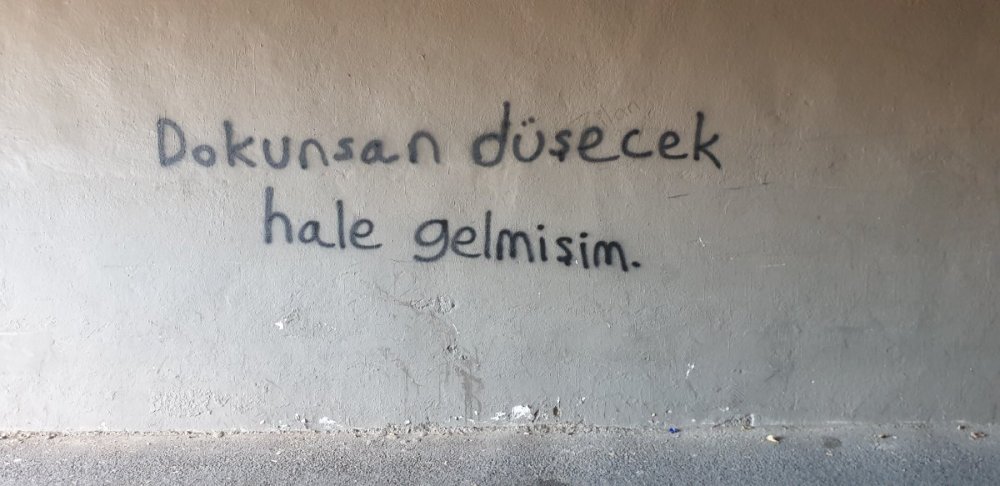 Dokunsan düşecek
hale gelmişim.